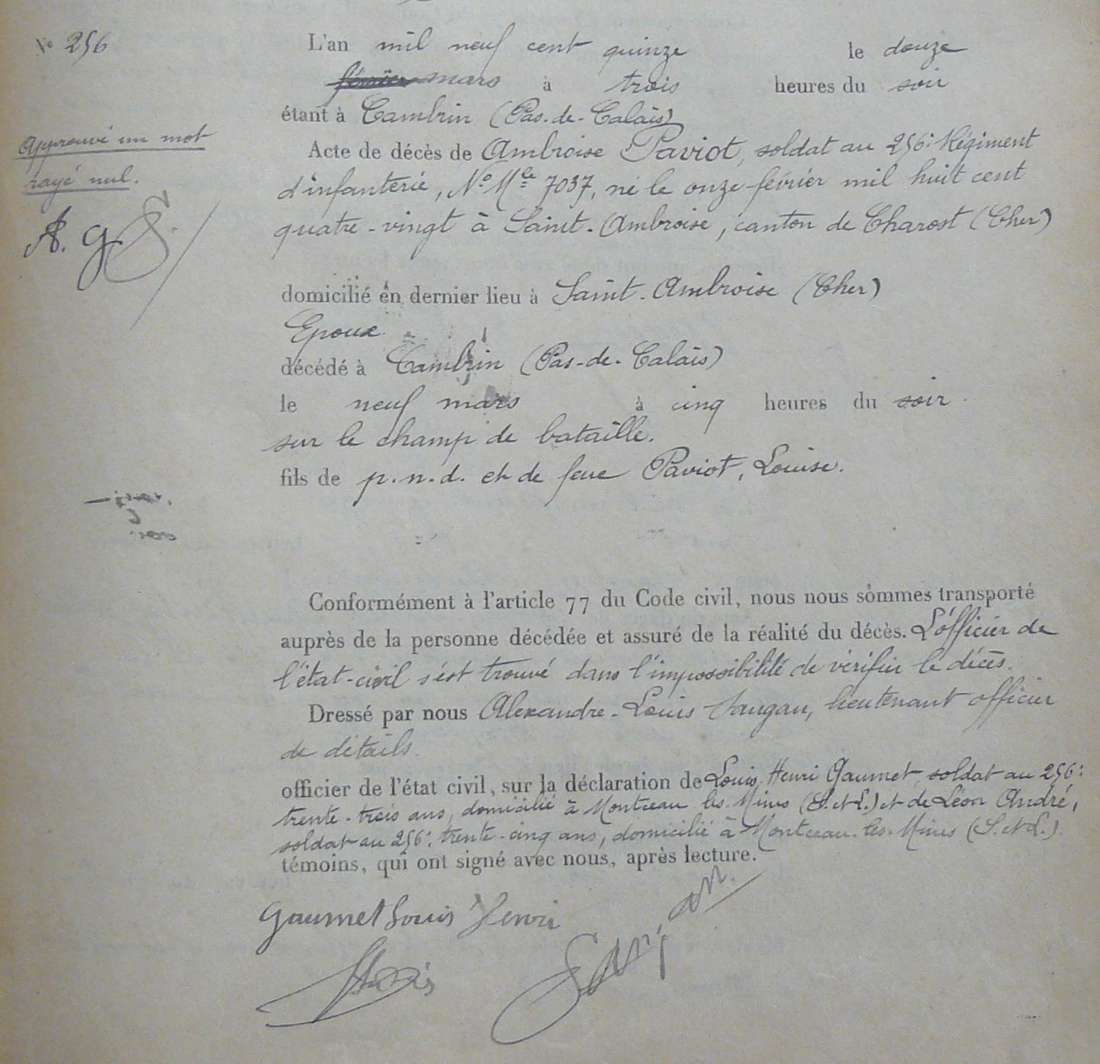 No 256
L'an mil neuf cent quinze le douze
février mars à trois heures du soir
étant à Cambrin (Pas-de-Calais)
Approuvé un mot
rayé nul.
A. G. S.
Acte de décès de Ambroise Paviot, soldat au 256e Régiment
d'infanterie, No Mle 7037, né le onze février mil huit cent
quatre-vingt à Saint-Ambroise, canton de Charost (Cher)
domicilié en dernier lieu à Saint-Ambroise (Cher)
Epoux
décédé à Cambrin (Pas-de-Calais)
le neuf mars à cinq heures du soir
sur le champ de bataille.
fils de p.n.d. et de feue Paviot, Louise.
Conformément à l'article 77 du Code civil, nous nous sommes transporté
auprès de la personne décédée et assuré de la réalité du décès. L'officier de
l'état-civil s'est trouvé dans l'impossibilité de vérifier le décès.
Dressé par nous Alexandre-Louis lieutenant officier
de détails.
officier de l'état civil, sur la déclaration de Louis Henri Gaumet, soldat au 256e
trente-trois ans, domicilié à Montceau les Mines (S. et L.) et de Léon André,
soldat au 256e, trente-cinq ans, domicilié à Montceau-les-Mines (S. et L.)
témoins, qui ont signé avec nous, après lecture.
Gaumet Louis Henri